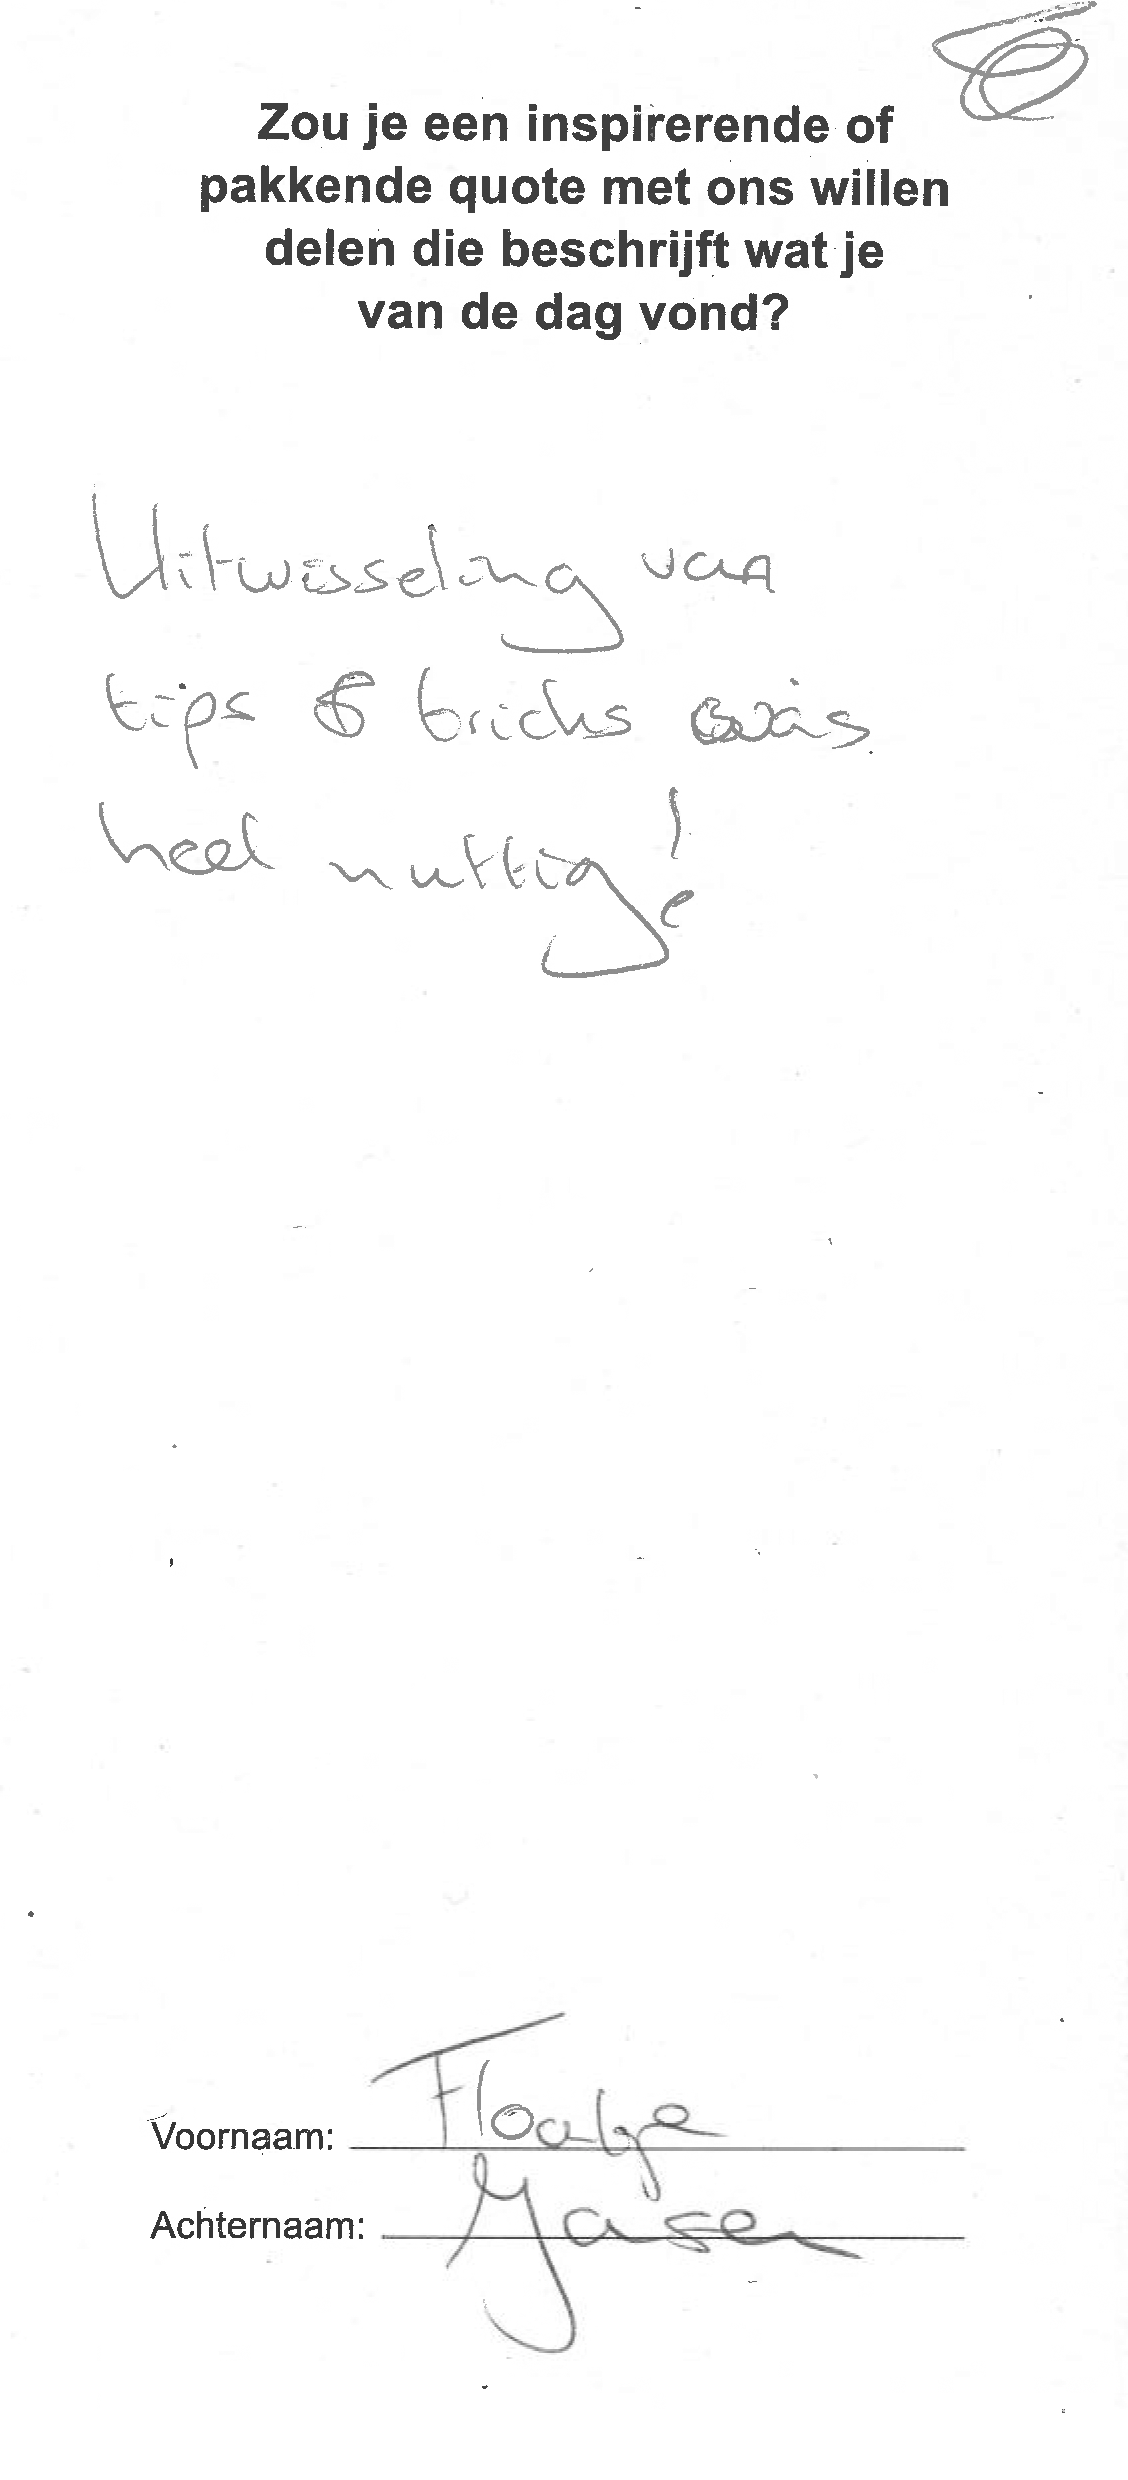 Zou je een inspirerende of
pakkende quote met ons willen
delen die beschrijft wat je
van de dag vond?
Uitwisseling van
tips & tricks was
heel nuttig!
Voornaam:
Achternaam: